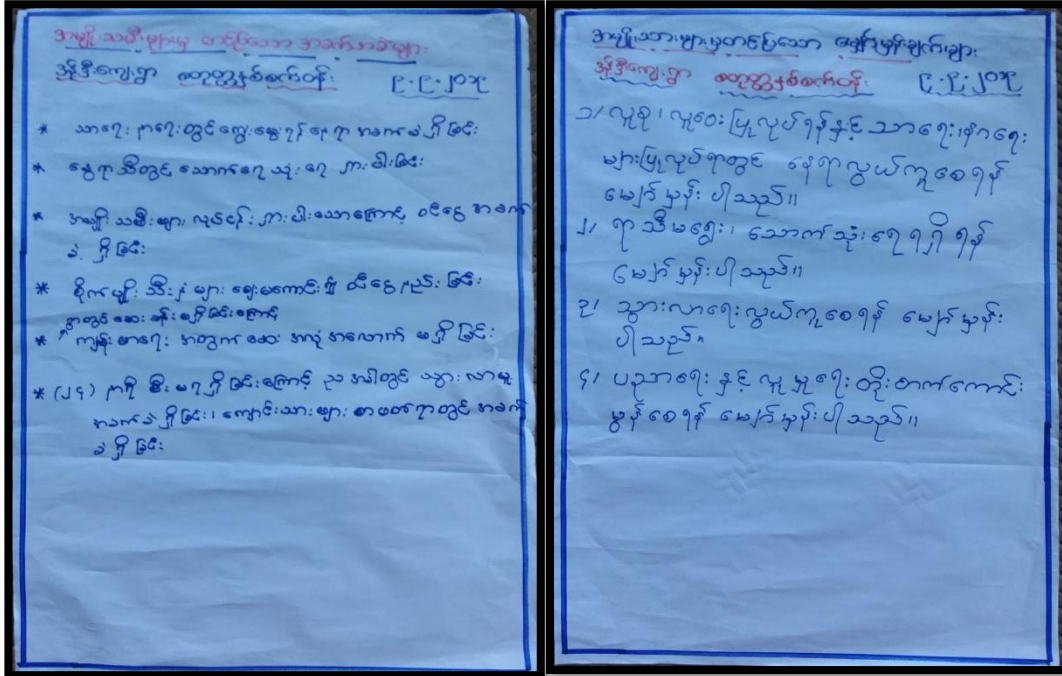 အမျိုးသမီးများမှ တင်ပြသော အခက်အခဲများ
အိုင်းကျေးရွာ စတုတ္ထနှစ်စက်ဝန်း ၉.၉.၂၀၁၉
* သာရေး နာရေးတွင် ကျွေးမွေးရန် နေရာ အခက်ခဲရှိခြင်း
* နွေရာသီတွင် သောက်ရေသုံးရေ ရှားပါးခြင်း
* အမျိုးသမီးများ လုပ်ငန်းရှားပါးသောကြောင့် ဝင်ငွေ အခက်
ခဲ ရှိခြင်း
* စိုက်ပျိုးသီးနှံများ ဈေးမကောင်း၍ ဝင်ငွေနည်းခြင်း
ရွာတွင် ဆေးခန်းမရှိခြင်းကြောင့်
* ကျန်းမာရေး အတွက် ဆေး အလုံအလောက် မရှိခြင်း
* (၂၄) နာရီ မီးမရရှိခြင်းကြောင့် ညအခါတွင် သွားလာမှု
အခက်ခဲရှိခြင်း၊ ကျောင်းသားများ စာဖတ်ရာတွင် အခက်
ခဲရှိခြင်း
အမျိုးသားများမှတင်ပြသော မျှော်မှန်းချက်များ
ကျေးရွာ စတုတ္ထနှစ်စက်ဝန်း ၉.၉.၂၀၁၉
၁/ လူစု၊ လူဝေး ပြုလုပ်ရန်နှင့် သာရေး၊နာရေး
များပြုလုပ်ရာတွင် နေရာလွယ်ကူစေရန်
မျှော်မှန်းပါသည်။
၂/ ရာသီမရွေး၊ သောက်သုံးရေရရှိရန်
မျှော်မှန်းပါသည်။
၃/ သွားလာရေးလွယ်ကူစေရန် မျှော်မှန်း
ပါသည်။
၄/ ပညာရေးနှင့် လူမှုရေးတိုးတက်ကောင်း
မွန်စေရန် မျှော်မှန်းပါသည်။